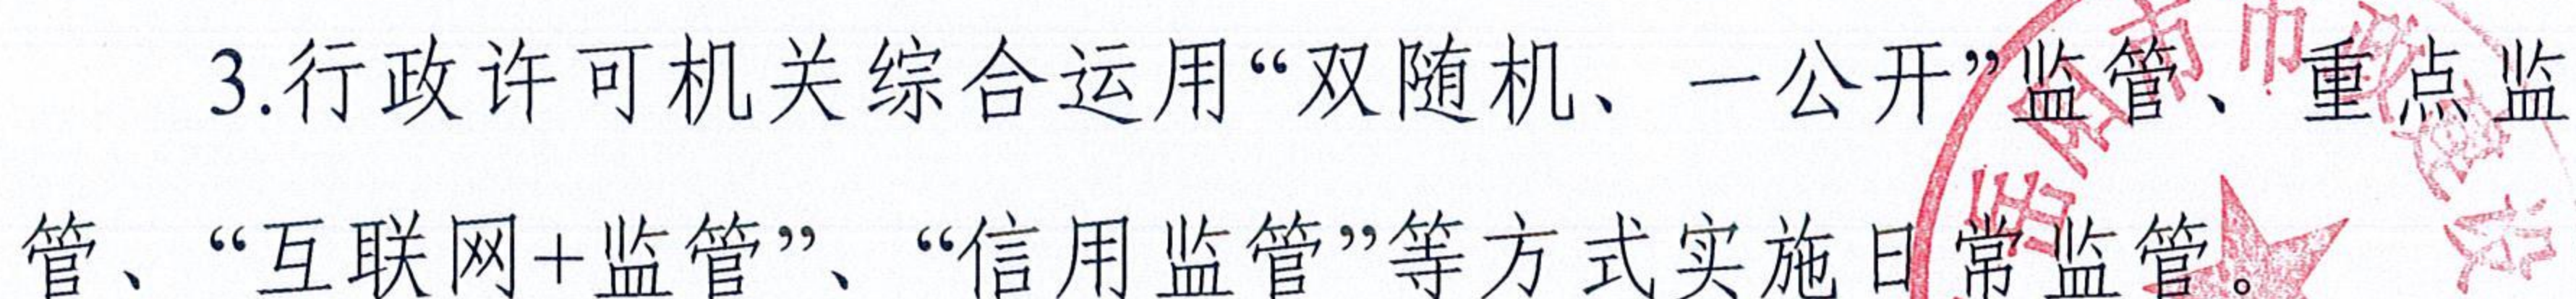 3.行政许可机关综合运用“双随机、一公开”监管、重点监
管、“互联网+监管”、“信用监管”等方式实施日常监管。